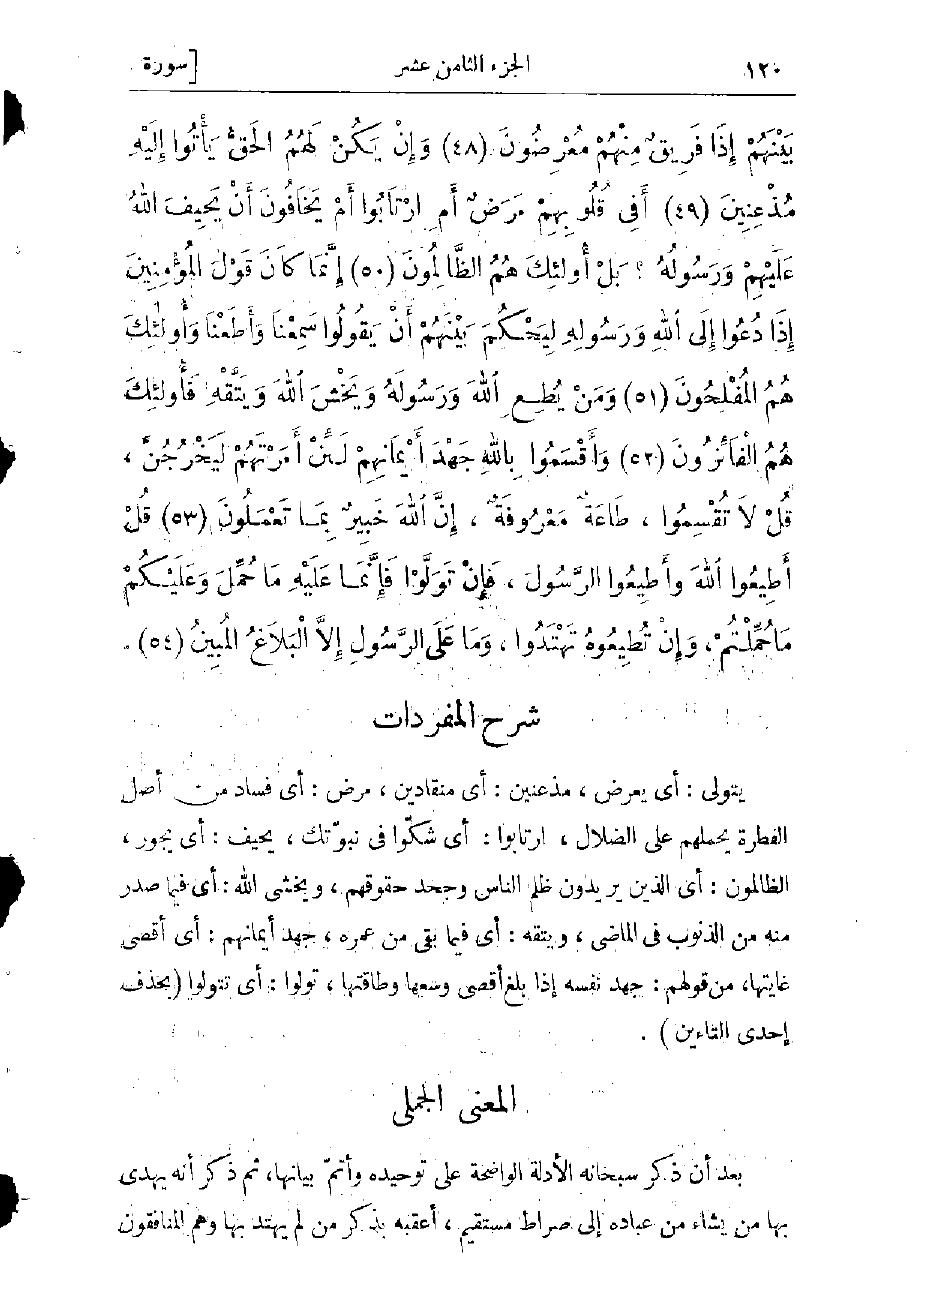 ١٢٠ الجزء الثامن عشر [سورة
بَيْنَهُمْ إِذَا فَرِيقٌ مِنْهُمْ مُعْرِضُونَ (٤٨) وَإِنْ يَكُنْ لَهُمُ الْحَقُّ يَأْتُوا إِلَيْهِ
مُذْعِنِينَ (٤٩) أَفِى قُلُوبِهِمْ مَرَضٌ أَمِ ارْتَابُوا أَمْ يَخَافُونَ أَنْ يَحِيفَ اللهُ
عَلَيْهِمْ وَرَسُولُهُ ؟ بَلْ أُولئِكَ هُمُ الظَّالِمُونَ (٥٠) إِنَّمَا كَانَ قَوْلَ الْمُؤْمِنِينَ
إِذَا دُعُوا إِلَى اللهِ وَرَسُولِهِ لِيَحْكُمَ بَيْنَهُمْ أَنْ يَقُولُوا سَمِعْنَا وَأَطَعْنَا وَأُولئِكَ
هُمُ الْمُفْلِحُونَ (٥١) وَمَنْ يُطِعِ اللهَ وَرَسُولَهُ وَيَخْشَ اللهَ وَيَتَّقْهِ فَأُولئِكَ
هُمُ الْفَائِزُونَ (٥٢) وَأَقْسَمُوا بِاللهِ جَهْدَ أَيْمَانِهِمْ لَئِنْ أَمَرْتَهُمْ لَيَخْرُجُنَّ ،
قُلْ لَا تُقْسِمُوا ، طَاعَةٌ مَعْرُوفَةٌ ، إِنَّ اللهَ خَبِيرٌ بِمَا تَعْمَلُونَ (٥٣) قُلْ
أَطِيعُوا اللهَ وَأَطِيعُوا الرَّسُولَ ، فَإِنْ تَوَلَّوْا فَإِنَّمَا عَلَيْهِ مَا حُمِّلَ وَعَلَيْكُمْ
مَا حُمِّلْتُمْ ، وَإِنْ تُطِيعُوهُ تَهْتَدُوا ، وَمَا عَلَى الرَّسُولِ إِلَّا الْبَلَاغُ الْمُبِينُ (٥٤) .
شرح المفردات
يتولى : أى يعرض ، مذعنين : أى منقادين ، مرض : أى فساد من أصل
الفطرة يحملهم على الضلال ، ارتابوا : أى شكّوا فى نبوّتك ، يحيف : أى يجور ،
الظالمون : أى الذين يريدون ظلم الناس وجحد حقوقهم ، ويخشى الله : أى فيما صدر
منه من الذنوب فى الماضى ، ويتقه : أى فيما بقى من عمره ، جهد أيمانهم : أى أقصى
غايتها، من قولهم : جهد نفسه إذا بلغ أقصى وسعها وطاقتها ، تولوا : أى تتولوا (بحذف
إحدى التاءين ) .
المعنى الجملى
بعد أن ذكر سبحانه الأدلة الواضحة على توحيده وأتمّ بيانها، ثم ذكر أنه يهدى
بها من يشاء من عباده إلى صراط مستقيم ، أعقبه بذكر من لم يهتد بها وهم المنافقون